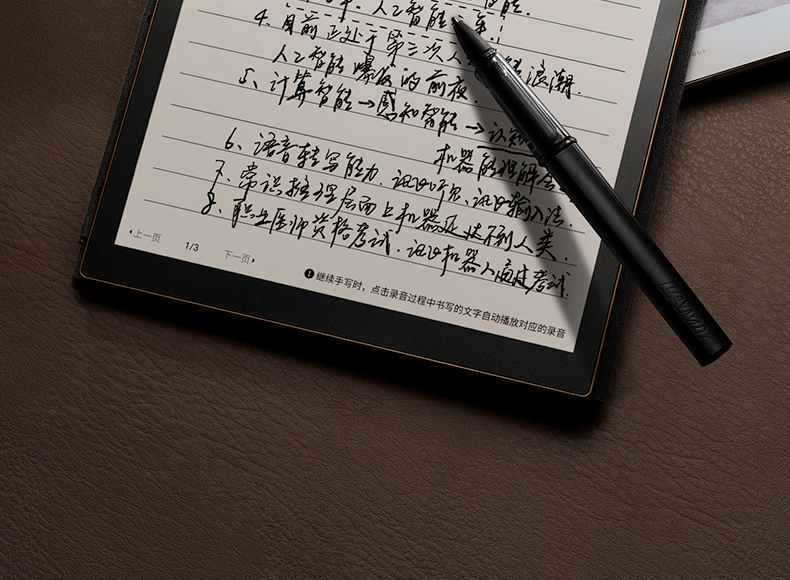 人工智能
4、目前正处于第三次人 浪潮.
人工智能爆发的前夜.
5、计算智能→感知智能→认知
机器能理解会
6、语音转写能力. 讯飞听见、讯飞输入法.
7、常识推理层面上机器还达不到人类.
8、职业医师资格考试. 讯飞机器人通过考试.
上一页 1/3 下一页
继续手写时，点击录音过程中书写的文字自动播放对应的录音
LAMY